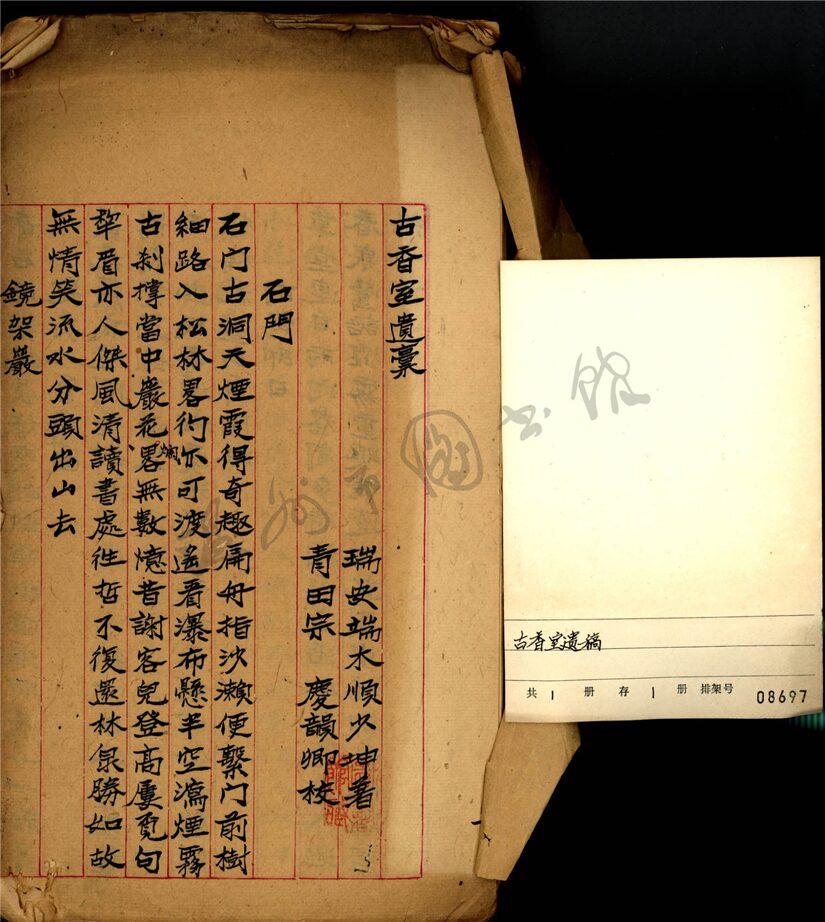 古香室遺稾
瑞安端木順少坤著
青田宗慶韻卿校
石門
石门古洞天煙霞得奇趣扁舟指沙瀨便繫门前樹
細路入松林畧彴亦可渡遙看瀑布懸半空瀉煙霧
古刹撑當中巖花爛無數憶昔謝客兒登高屢覓句
犂眉亦人傑風清讀書處往哲不復還林泉勝如故
無情笑流水分頭出山去
鏡架巖
古香室遗稿
共 1 册 存 1 册 排架号 08697